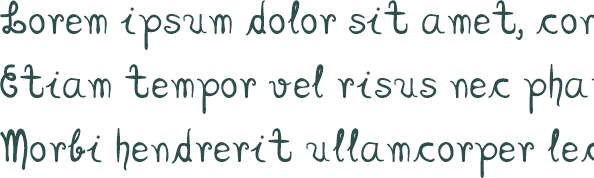 Lorem ipsum dolor sit amet, cor
Etiam tempor vel risus nec phar
Morbi hendrerit ullamcorper leo